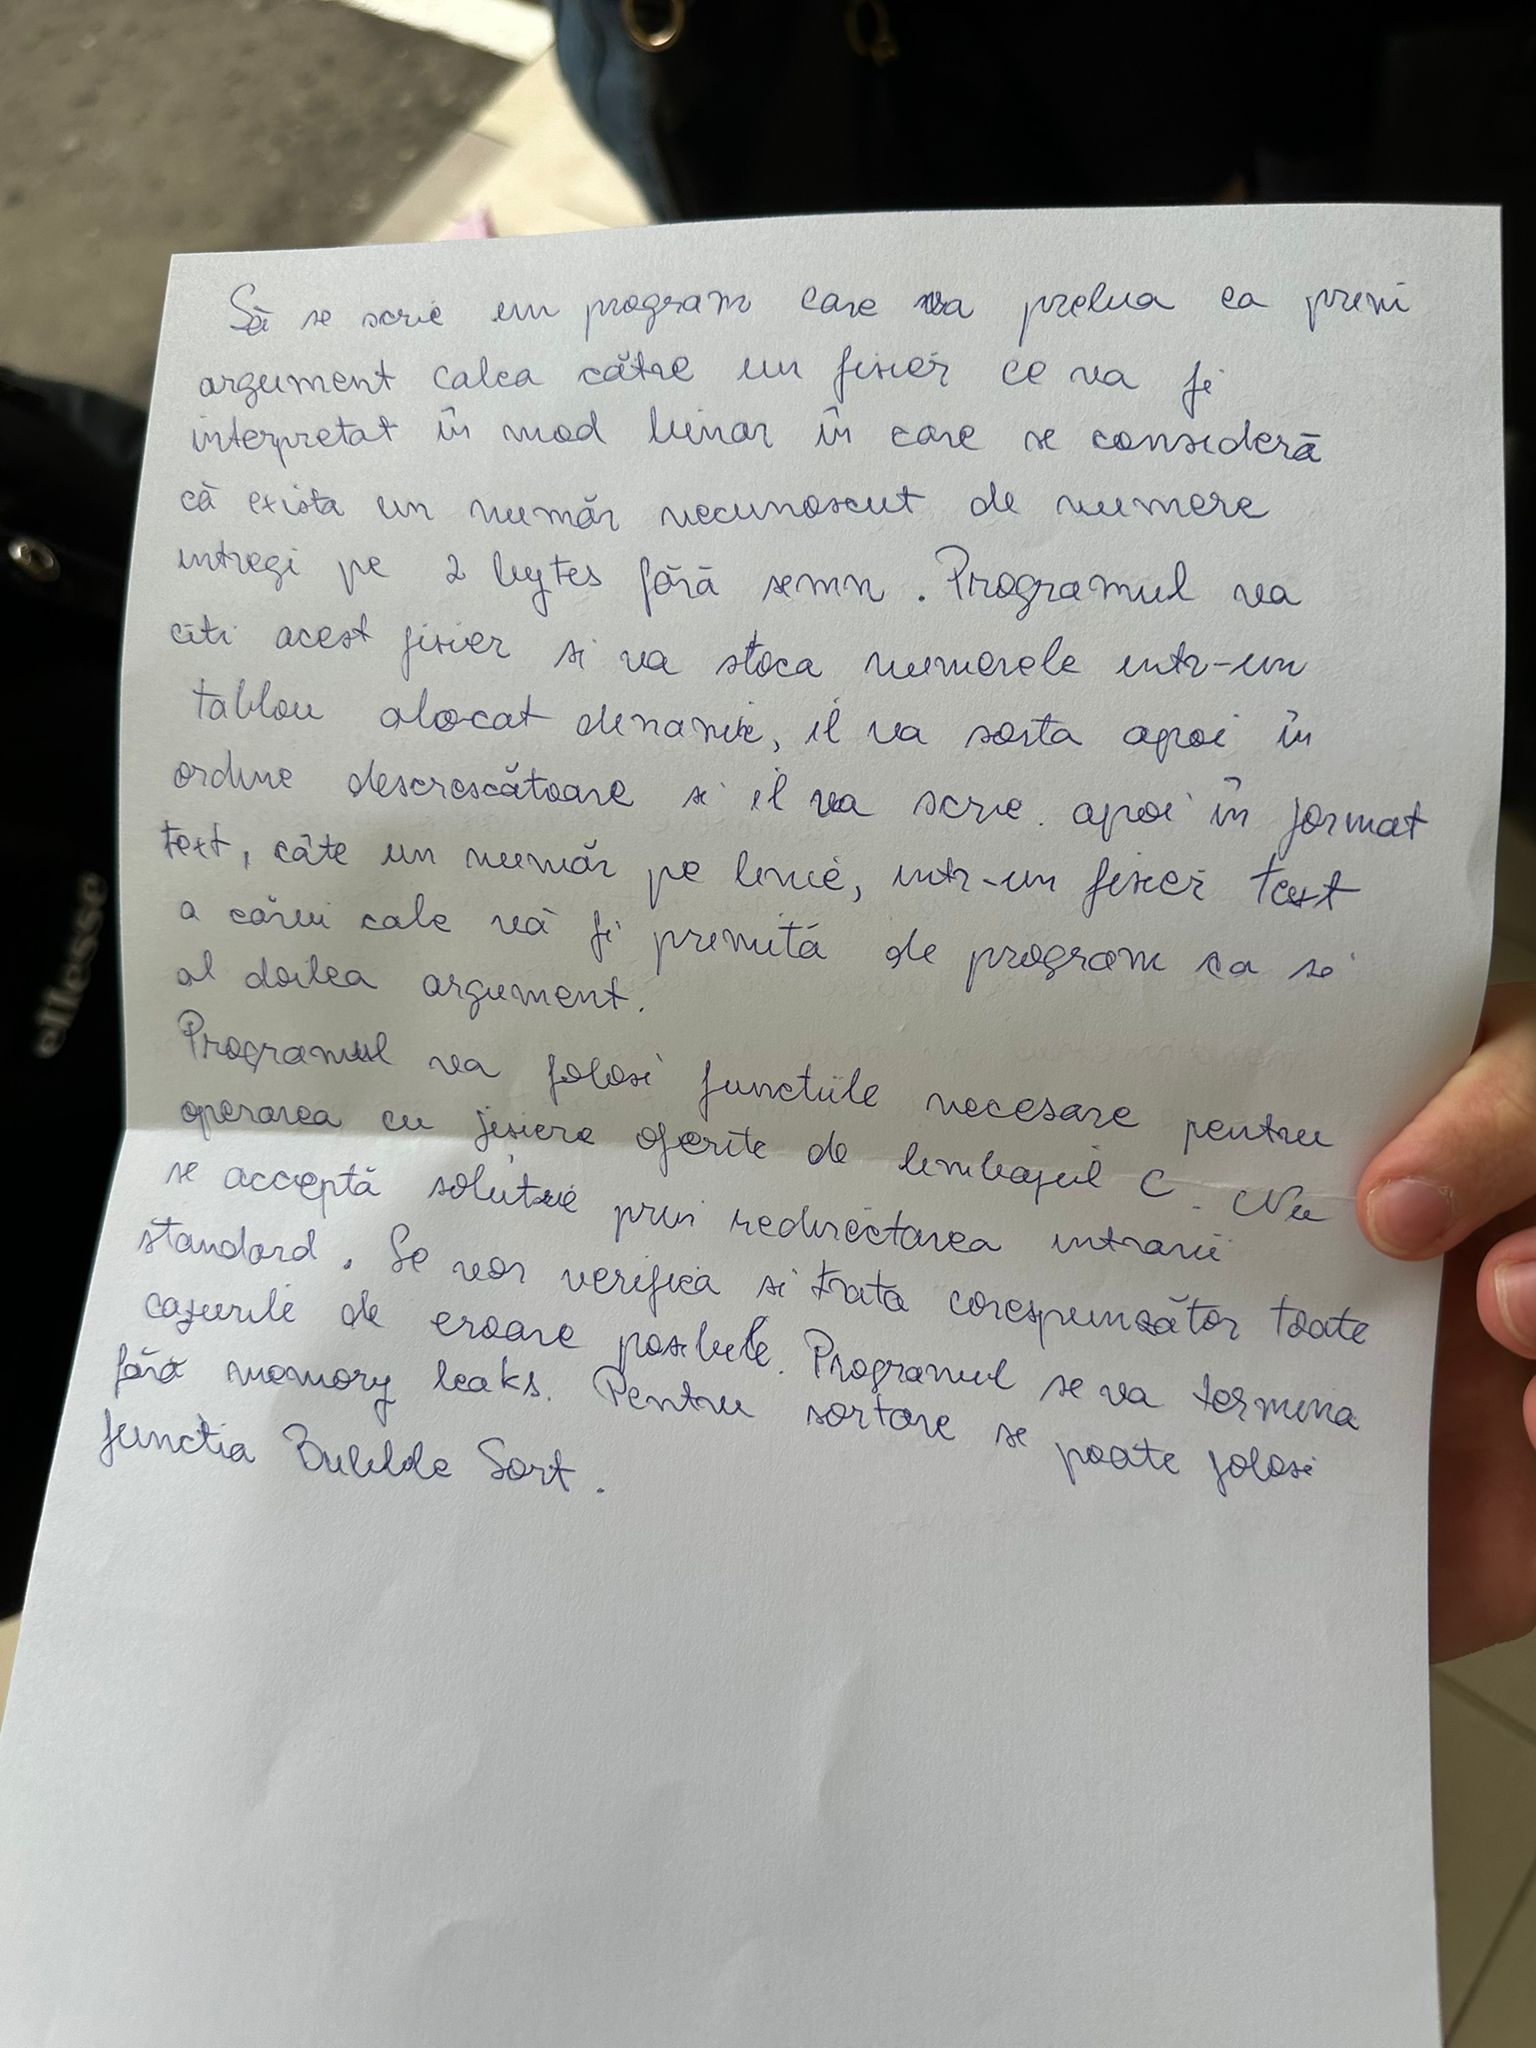 Să se scrie un program care va prelua ca prim
argument calea către un fisier ce va fi
interpretat în mod binar în care se consideră
că exista un număr necunoscut de numere
intregi pe 2 bytes fără semn. Programul va
citi acest fisier si va stoca numerele intr-un
tablou alocat dinamic, il va sorta apoi în
ordine descrescătoare si il va scrie apoi în format
text, câte un număr pe linie, intr-un fisier text
a cărui cale va fi primită de program ca si
al doilea argument.
Programul va folosi functiile necesare pentru
operarea cu fisiere oferite de limbajul C. Nu
se acceptă solutie prin redirectarea intrarii
standard. Se vor verifica si trata corespunzător toate
cazurile de eroare posibile. Programul se va termina
fără memory leaks. Pentru sortare se poate folosi
functia Bubble Sort.
ellesse